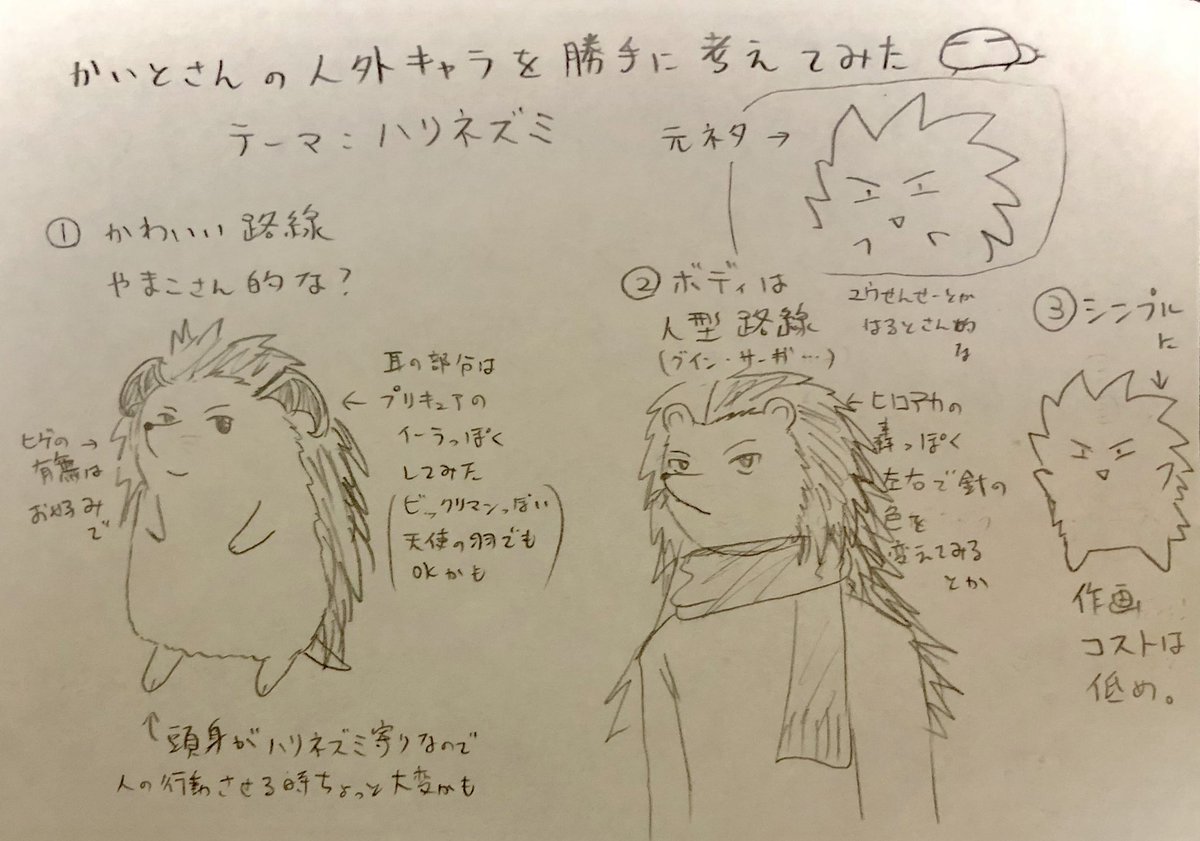 かいとさんの人外キャラを勝手に考えてみた
テーマ：ハリネズミ
元ネタ→
① かわいい路線
やまこさん的な？
耳の部分は
← プリキュアの
イーラっぽく
してみた
(ビックリマンっぽい
天使の羽でも
OKかも)
ヒゲの →
有無は
お好みで
↑頭身がハリネズミ寄りなので
人の行動させる時ちょっと大変かも
② ボディは
人型路線
(グイン・サーガ…)
ユウせんせーとか
はるとさん的
な
← ヒロアカの
轟っぽく
左右で針の
色を
変えてみる
とか
③ シンプル
に
↓
作画
コストは
低め。